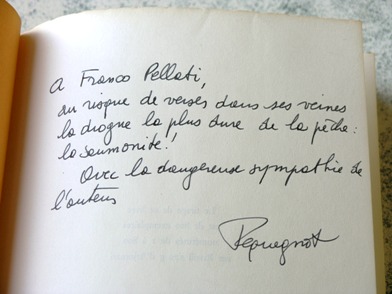 A Franco Pellati,
au risque de verser dans ses veines
la drogue la plus dure de la pêche :
la saumonite !
Avec la dangereuse sympathie de
l'auteur
Pequegnot